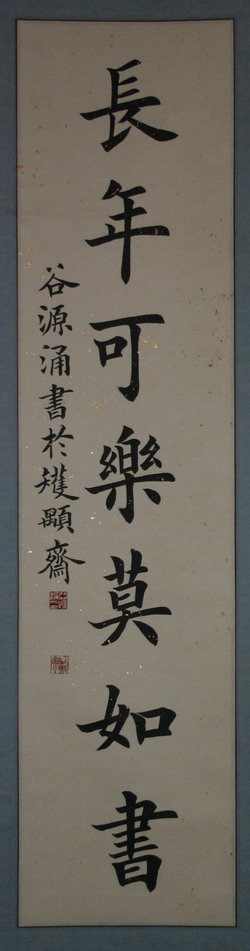 長年可樂莫如書
谷源涌書於矱顯齋